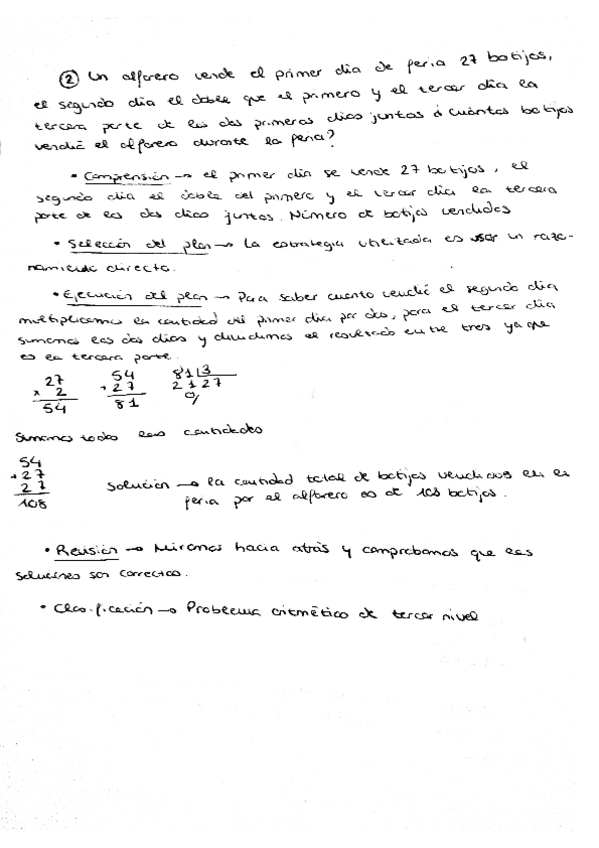 ② Un alfarero vende el primer día de feria 27 botijos,
el segundo día el doble que el primero y el tercer día la
tercera parte de los dos primeros días juntos ¿Cuántos botijos
vendió el alfarero durante la feria?
• Comprensión → el primer día se vende 27 botijos, el
segundo día el doble del primero y el tercer día la tercera
parte de los dos días juntos. Número de botijos vendidos
• Selección del plan → La estrategia utilizada es usar un razo-
namiento directo.
• Ejecución del plan → Para saber cuanto vendió el segundo día
multiplicamos la cantidad del primer día por dos, para el tercer día
sumamos los dos días y dividimos el resultado entre tres ya que
es la tercera parte.
27 54 81 | 3
x 2 + 27 21 27
54 81 0
Sumamos todas las cantidades
54
+ 27
27
108
Solución → la cantidad total de botijos vendidos en la
feria por el alfarero es de 108 botijos.
• Revisión → Miramos hacia atrás y comprobamos que las
soluciones son correctas.
• Clasificación → Problema aritmético de tercer nivel